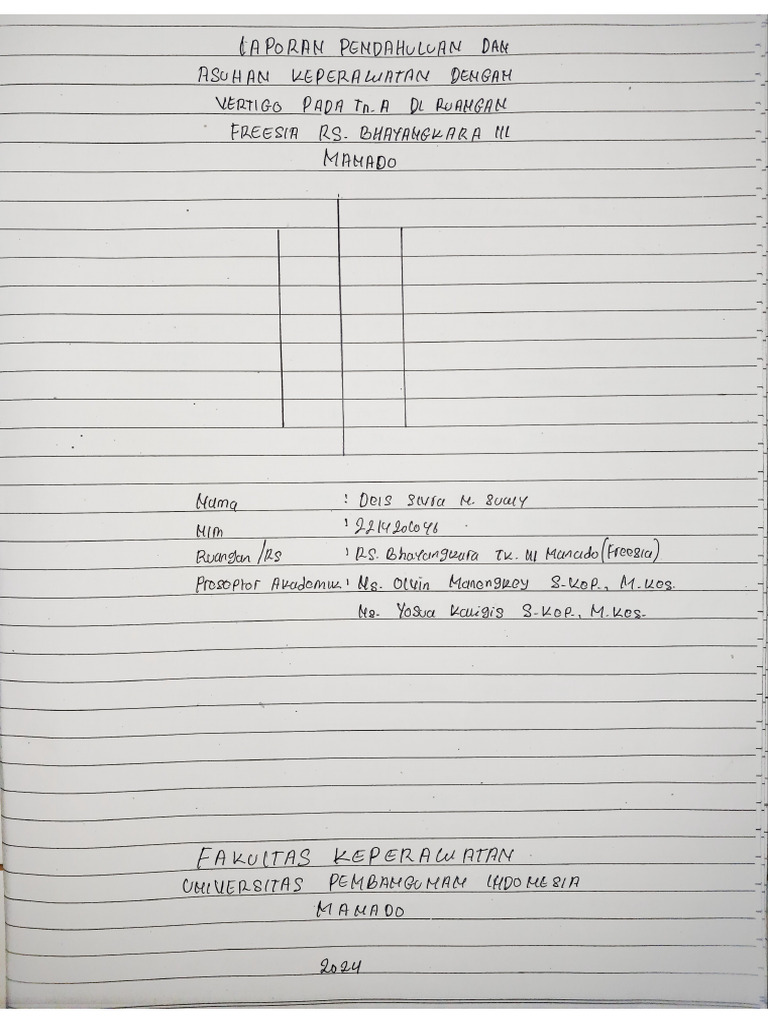 LAPORAN PENDAHULUAN DAN
ASUHAN KEPERAWATAN DENGAN
VERTIGO PADA Tn. A DI RUANGAN
FREESIA RS. BHAYANGKARA III
MANADO
Nama : Deis M. Suwy
NIM :
Ruangan /RS : RS. Bhayangkara TK. III Manado (Freesia)
Preseptor Akademik : Ns. Olvin Manengkey S.Kep., M.Kes.
Ns. Yosua Kaligis S.Kep., M.Kes.
FAKULTAS KEPERAWATAN
UNIVERSITAS PEMBANGUNAN INDONESIA
MANADO
2024